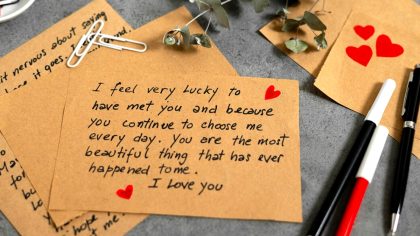 it nervous about saying
I love you.
I feel very Lucky to
have met you and because
you continue to choose me
every day. You are the most
beautiful thing that has ever
happened to me.
I Love you
hope
me